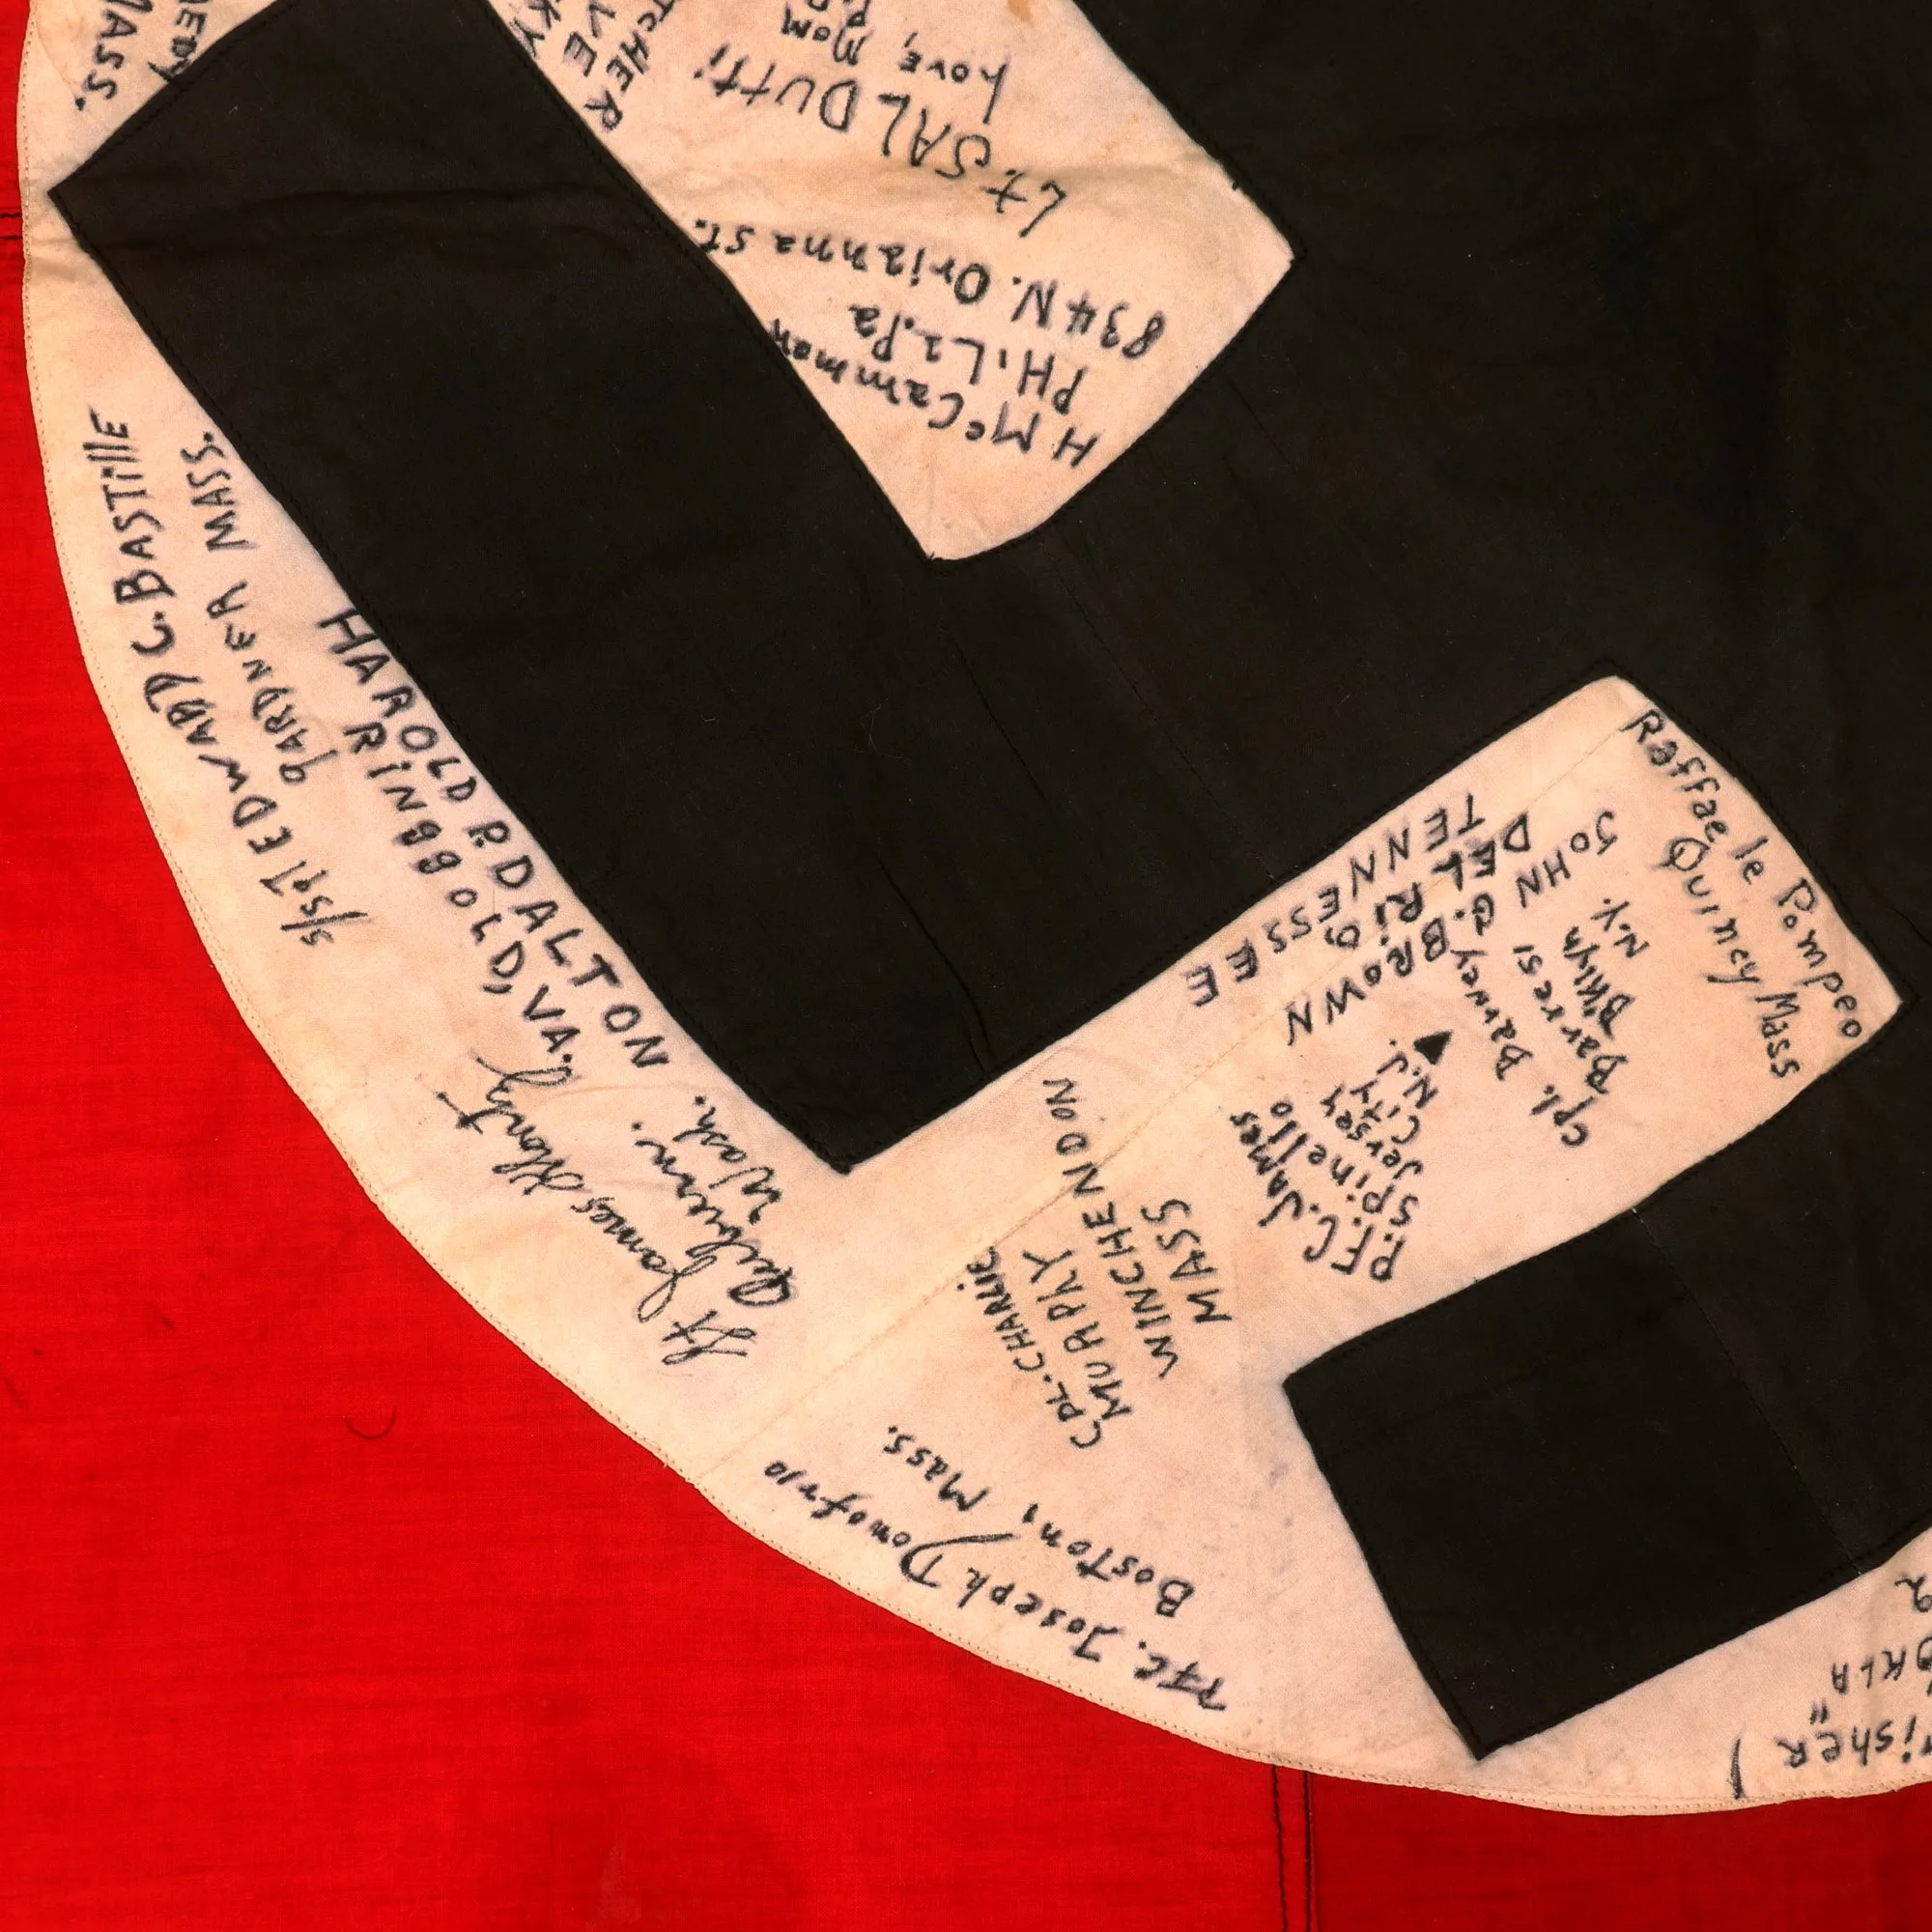 MASS.
LOVE, MOM
Lt. SAL DUTTI
834 N. Orianna ST.
PHILa. Pa
H McCammon
S/Sgt EDWARD C. BASTILLE
GARDNER MASS.
HAROLD P. DALTON
RINGGOLD, VA.
Lt James
Auburn.
Wash.
CPL. CHARLIE
MURPHY
WINCHENDON
MASS
Pfc. Joseph Donofrio
Boston, Mass.
P.F.C. James
Spinello
Jersey
City
N.J.
Cpl. Barney
Barresi
B'klyn
N.Y.
JOHN
DEL G. BROWN
TENNESSEE
Raffaele Pompeo
Quincy Mass
OKLA